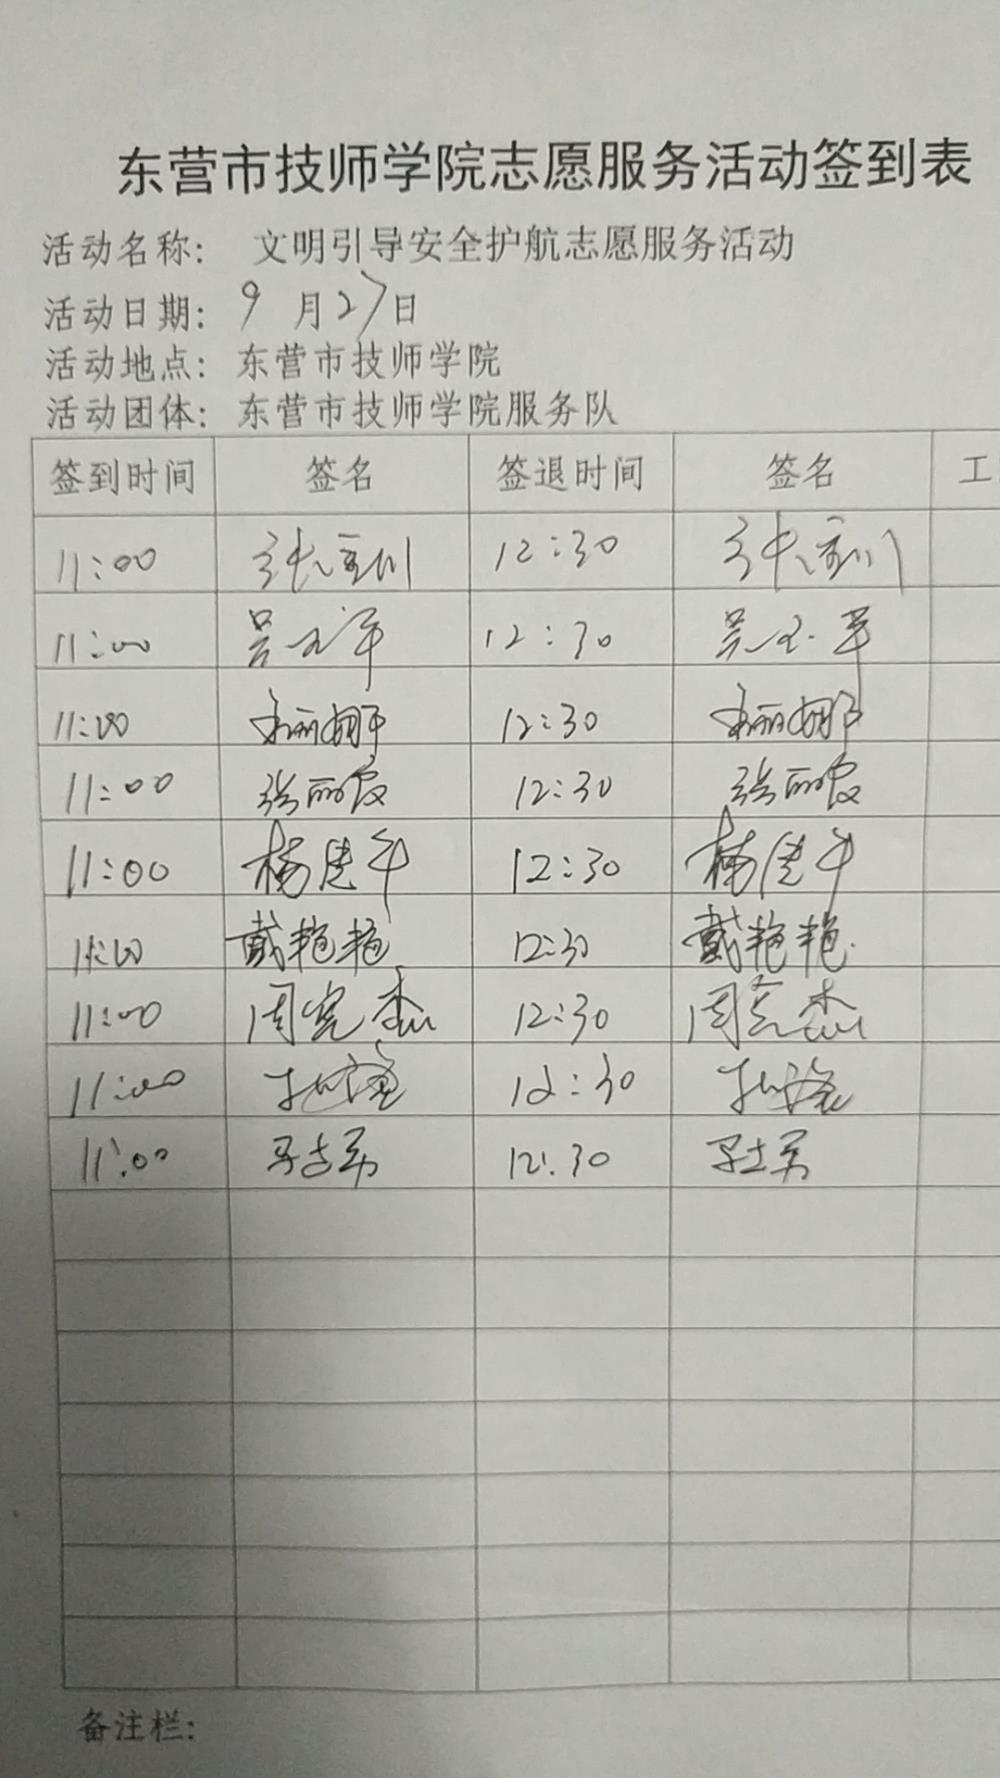 东营市技师学院志愿服务活动签到表
活动名称: 文明引导安全护航志愿服务活动
活动日期: 9 月27日
活动地点: 东营市技师学院
活动团体: 东营市技师学院服务队
签到时间 签名 签退时间 签名 工
11:00 12:30
11:00 12:30
11:00 12:30
11:00 张丽霞 12:30 张丽霞
11:00 杨建午 12:30 杨建午
11:00 戴艳艳 12:30 戴艳艳
11:00 周宪杰 12:30 周宪杰
11:00 12:30
11:00 12:30
备注栏: